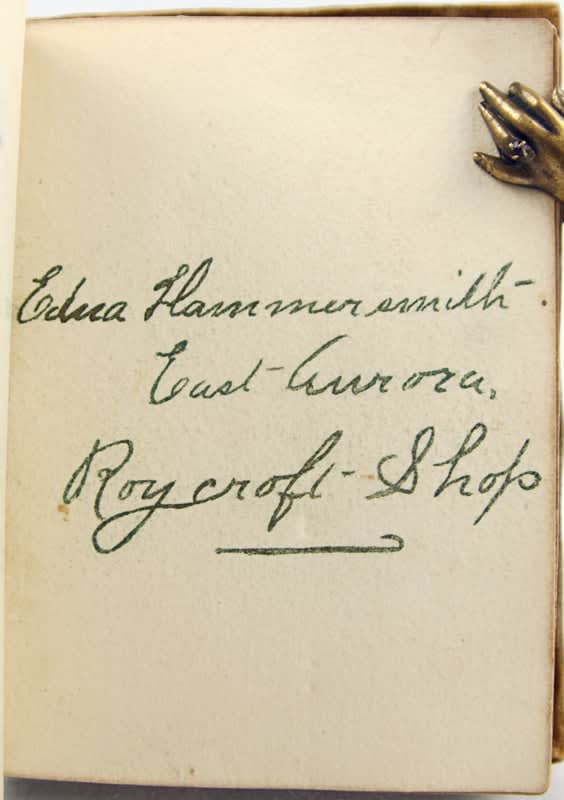 Edna Hammersmith.
East Aurora,
Roycroft Shop